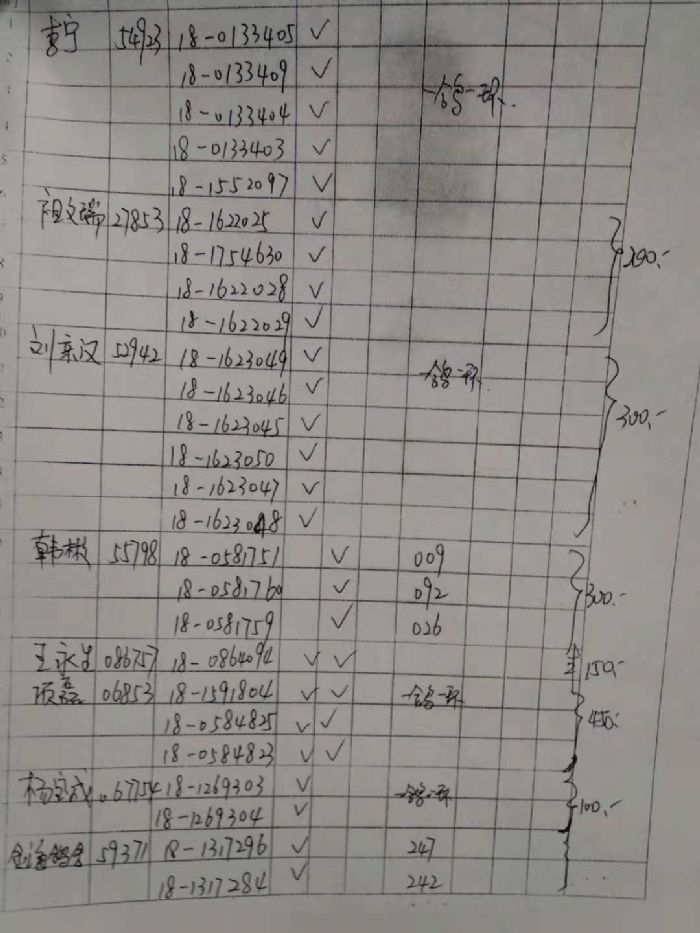 54923 18-0133405 ✓
18-0133409 ✓ 一鸽一环
18-0133404 ✓
18-0133403 ✓
18-1552097 ✓
27853 18-1622025 ✓
18-1754630 ✓ 200.-
18-1622028 ✓
18-1622029 ✓
刘亲汉 52942 18-1623049 ✓ 一鸽一环
18-1623046 ✓
18-1623045 ✓ 300.-
18-1623050 ✓
18-1623047 ✓
18-1623048 ✓
韩彬 55798 18-0581751 ✓ 009
18-0581760 ✓ 092 300.-
18-0581759 ✓ 026
王永生 086757 18-0864094 ✓ ✓ 150.-
项磊 06853 18-1591804 ✓ ✓ 一鸽一环
18-0584825 ✓ ✓ 450.-
18-0584823 ✓ ✓
杨宝成 67754 18-1269303 ✓ 一鸽一环
18-1269304 ✓ 100.-
59371 18-1317296 ✓ 247
18-1317284 ✓ 242